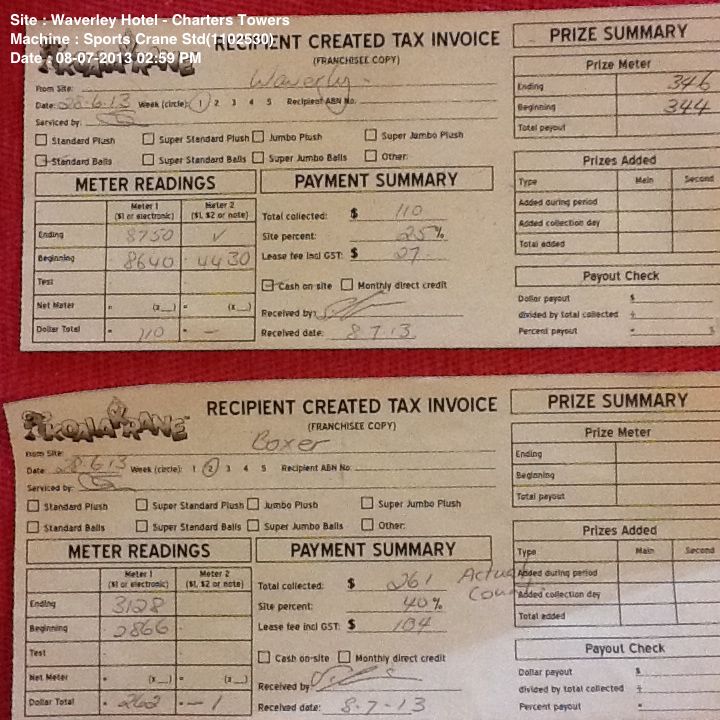 Site : Waverley Hotel - Charters Towers
Machine : Sports Crane Std(1102530)
Date : 08-07-2013 02:59 PM
KOALA KRANE
RECIPIENT CREATED TAX INVOICE
(FRANCHISEE COPY)
From Site: Waverly
Date: 28.6.13 Week (circle): 1 2 3 4 5 Recipient ABN No.
Serviced by:
Standard Plush Super Standard Plush Jumbo Plush Super Jumbo Plush
Standard Balls Super Standard Balls Super Jumbo Balls Other:
METER READINGS
Meter 1 Meter 2
($1 or electronic) ($1, $2 or note)
Ending 8750 ✓
Beginning 8640 4430
Test
Net Meter = (x__) = (x__)
Dollar Total = 110 = —
PAYMENT SUMMARY
Total collected: $ 110
Site percent: 25%
Lease fee incl GST: $ 27
Cash on site Monthly direct credit
Received by:
Received date: 8.7.13
PRIZE SUMMARY
Prize Meter
Ending 346
Beginning 344
Total payout
Prizes Added
Type Main Second
Added during period
Added collection day
Total added
Payout Check
Dollar payout $
divided by total collected ÷
Percent payout =
KOALA KRANE™
RECIPIENT CREATED TAX INVOICE
(FRANCHISEE COPY)
From Site: Boxer
Date: 28.6.13 Week (circle): 1 2 3 4 5 Recipient ABN No.
Serviced by:
Standard Plush Super Standard Plush Jumbo Plush Super Jumbo Plush
Standard Balls Super Standard Balls Super Jumbo Balls Other:
METER READINGS
Meter 1 Meter 2
($1 or electronic) ($1, $2 or note)
Ending 3128
Beginning 2866
Test
Net Meter = (x__) = (x__)
Dollar Total = 262 = - 1
PAYMENT SUMMARY
Total collected: $ 261 Actual
Site percent: 40% Count
Lease fee incl GST: $ 104
Cash on-site Monthly direct credit
Received by:
Received date: 8-7-13
PRIZE SUMMARY
Prize Meter
Ending
Beginning
Total payout
Prizes Added
Type Main Second
Added during period
Added collection day
Total added
Payout Check
Dollar payout $
divided by total collected ÷
Percent payout =